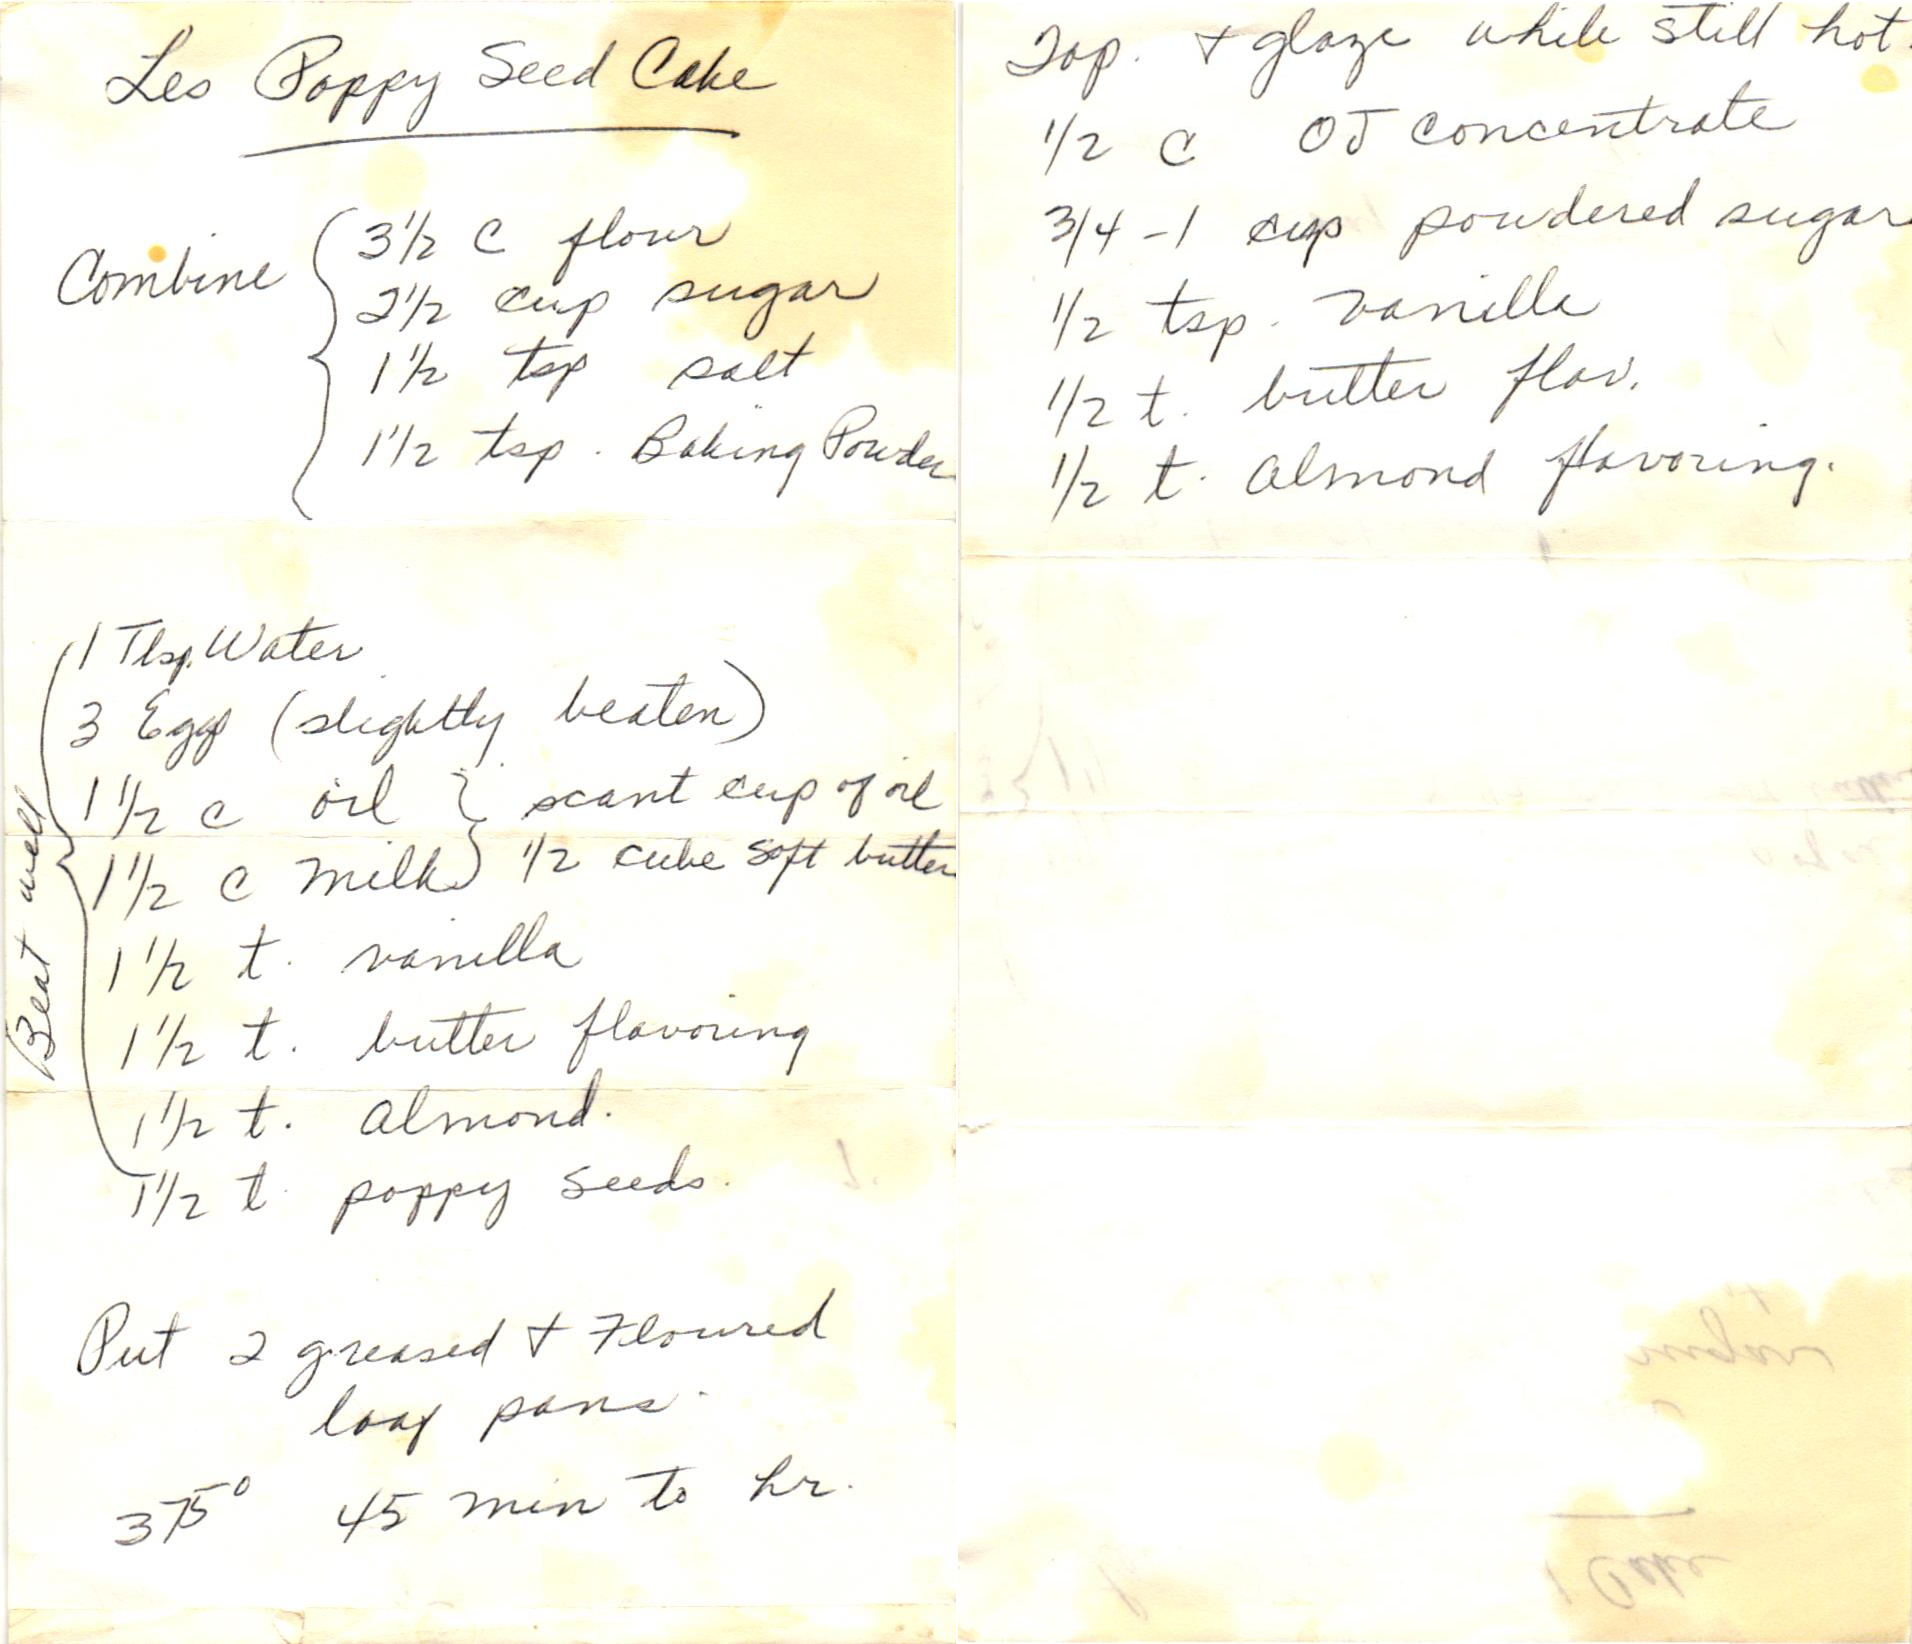 Les Poppy Seed Cake
Combine
3 1/2 C flour
2 1/2 cup sugar
1 1/2 tsp salt
1 1/2 tsp. Baking Powder
Beat well
1 Tbsp. Water
3 Eggs (slightly beaten)
1 1/2 c oil } scant cup of oil
1 1/2 c milk } 1/2 cube soft butter
1 1/2 t. vanilla
1 1/2 t. butter flavoring
1 1/2 t. almond.
1 1/2 t poppy seeds.
Put 2 greased & Floured
loaf pans.
375° 45 min to hr.
Top. & glaze while still hot.
1/2 c OJ concentrate
3/4 - 1 cup powdered sugar
1/2 tsp. vanilla
1/2 t. butter flav.
1/2 t. almond flavoring.